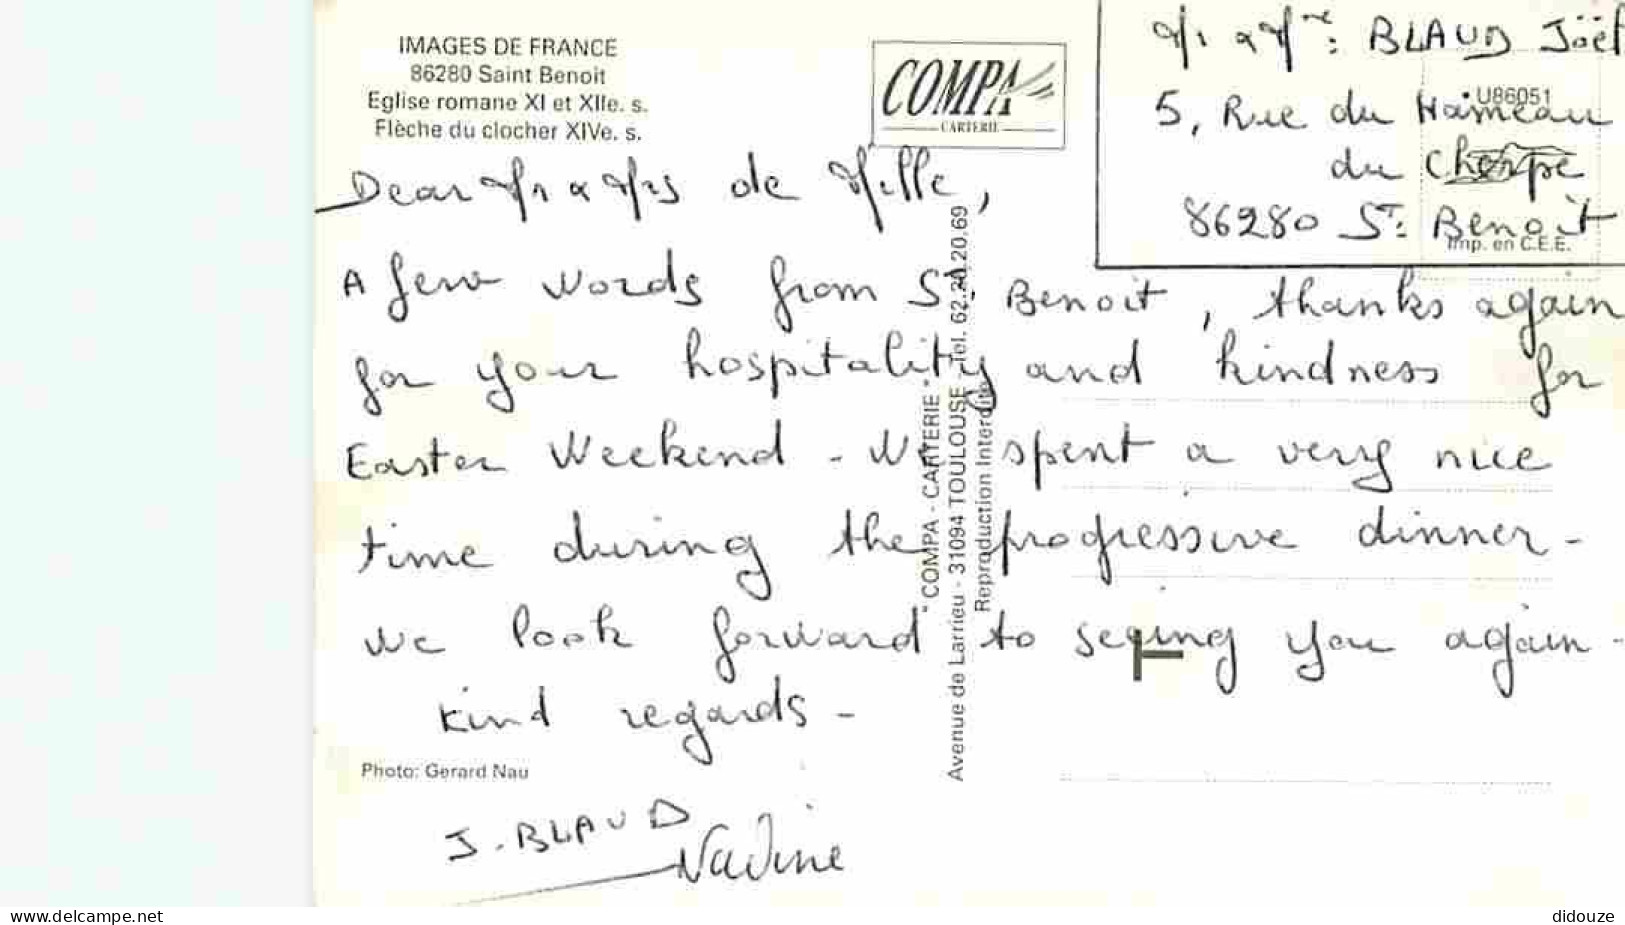 IMAGES DE FRANCE
86280 Saint Benoit
Eglise romane XI et XIIe. s.
Flèche du clocher XIVe. s.
COMPA
CARTERIE
Mr & Mme: BLAUD Joël
U86051
5, Rue du Hameau
du Cherpe
86280 ST: Benoit
Imp. en C.E.E.
Dear Mr & Mrs de Mille,
A few words from ST: Benoit, thanks again
for your hospitality and kindness for
Easter Weekend - We spent a very nice
time during the progressive dinner -
We look forward to seeing you again -
Kind regards -
Photo: Gerard Nau
J. BLAUD
Nadine
"COMPA - CARTERIE"
Avenue de Larrieu - 31094 TOULOUSE - Tel. 62.20.20.69
Reproduction Interdite
www.delcampe.net
didouze